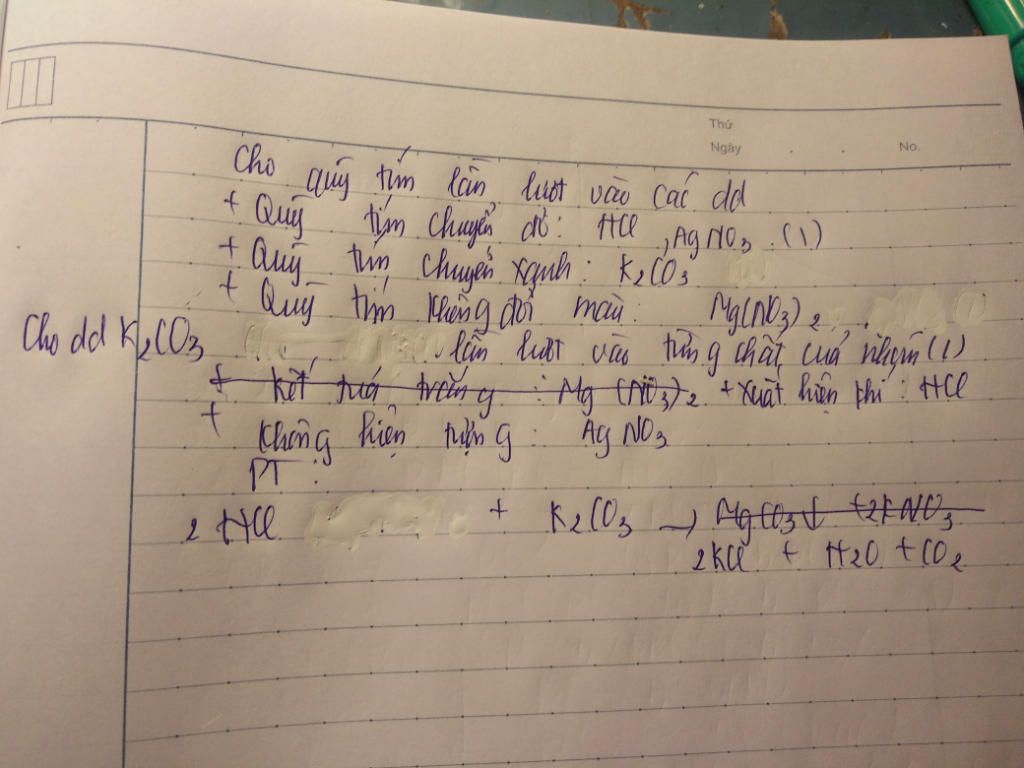 Thứ
Ngày . . No.
Cho quỳ tím lần lượt vào các dd
+ Quỳ tím chuyển đỏ: HCl, AgNO3 (1)
+ Quỳ tím chuyển xanh: K2CO3
+ Quỳ tím không đổi màu: Mg(NO3)2
Cho dd K2CO3 lần lượt vào từng chất của nhóm (1)
+ kết tủa trắng : Mg(NO3)2 + xuất hiện khí : HCl
+ không hiện tượng : AgNO3
PT :
2 HCl + K2CO3 → MgCO3↓ + 2KNO3
2KCl + H2O + CO2